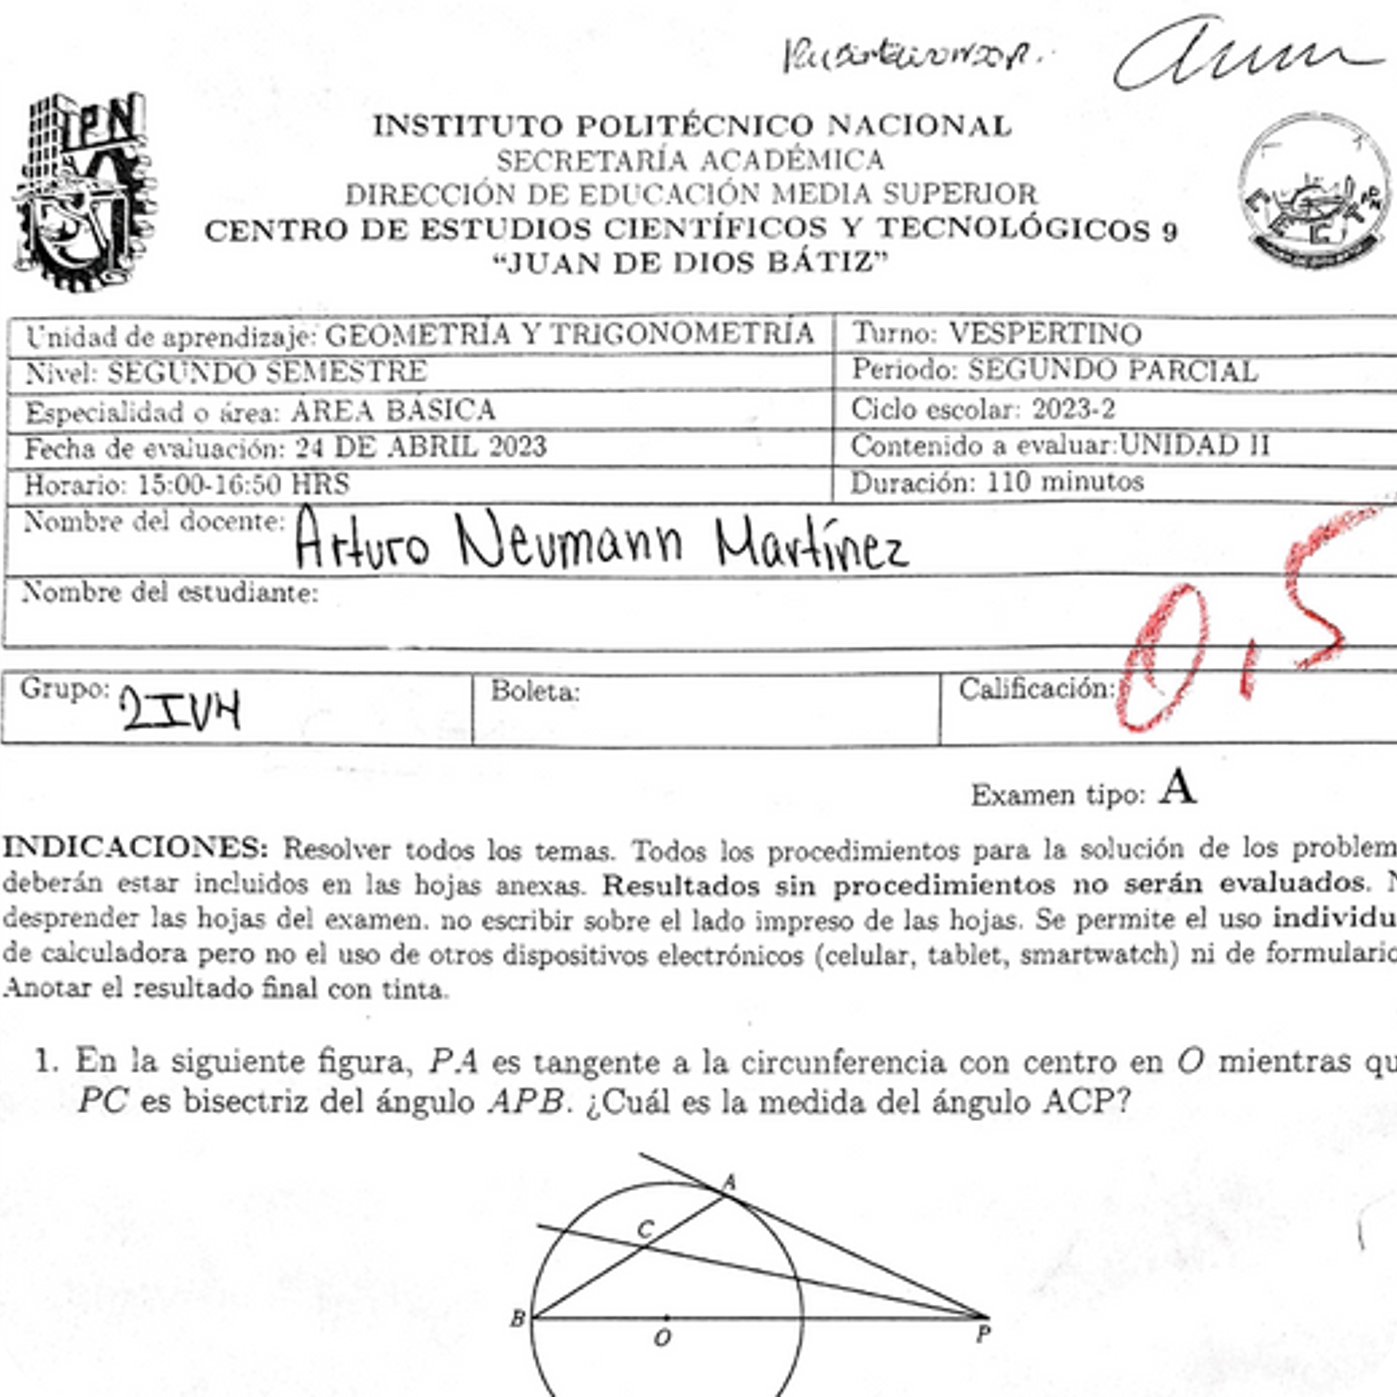 IPN
INSTITUTO POLITÉCNICO NACIONAL
SECRETARÍA ACADÉMICA
DIRECCIÓN DE EDUCACIÓN MEDIA SUPERIOR
CENTRO DE ESTUDIOS CIENTÍFICOS Y TECNOLÓGICOS 9
“JUAN DE DIOS BÁTIZ”
Unidad de aprendizaje: GEOMETRÍA Y TRIGONOMETRÍA Turno: VESPERTINO
Nivel: SEGUNDO SEMESTRE Periodo: SEGUNDO PARCIAL
Especialidad o área: ÁREA BÁSICA Ciclo escolar: 2023-2
Fecha de evaluación: 24 DE ABRIL 2023 Contenido a evaluar:UNIDAD II
Horario: 15:00-16:50 HRS Duración: 110 minutos
Nombre del docente: Arturo Neumann Martínez
Nombre del estudiante:
Grupo: 2IVH Boleta: Calificación: 0,5
Examen tipo: A
INDICACIONES: Resolver todos los temas. Todos los procedimientos para la solución de los problem
deberán estar incluidos en las hojas anexas. Resultados sin procedimientos no serán evaluados. N
desprender las hojas del examen. no escribir sobre el lado impreso de las hojas. Se permite el uso individu
de calculadora pero no el uso de otros dispositivos electrónicos (celular, tablet, smartwatch) ni de formulario
Anotar el resultado final con tinta.
1. En la siguiente figura, PA es tangente a la circunferencia con centro en O mientras qu
PC es bisectriz del ángulo APB. ¿Cuál es la medida del ángulo ACP?
A
C
B
O
P